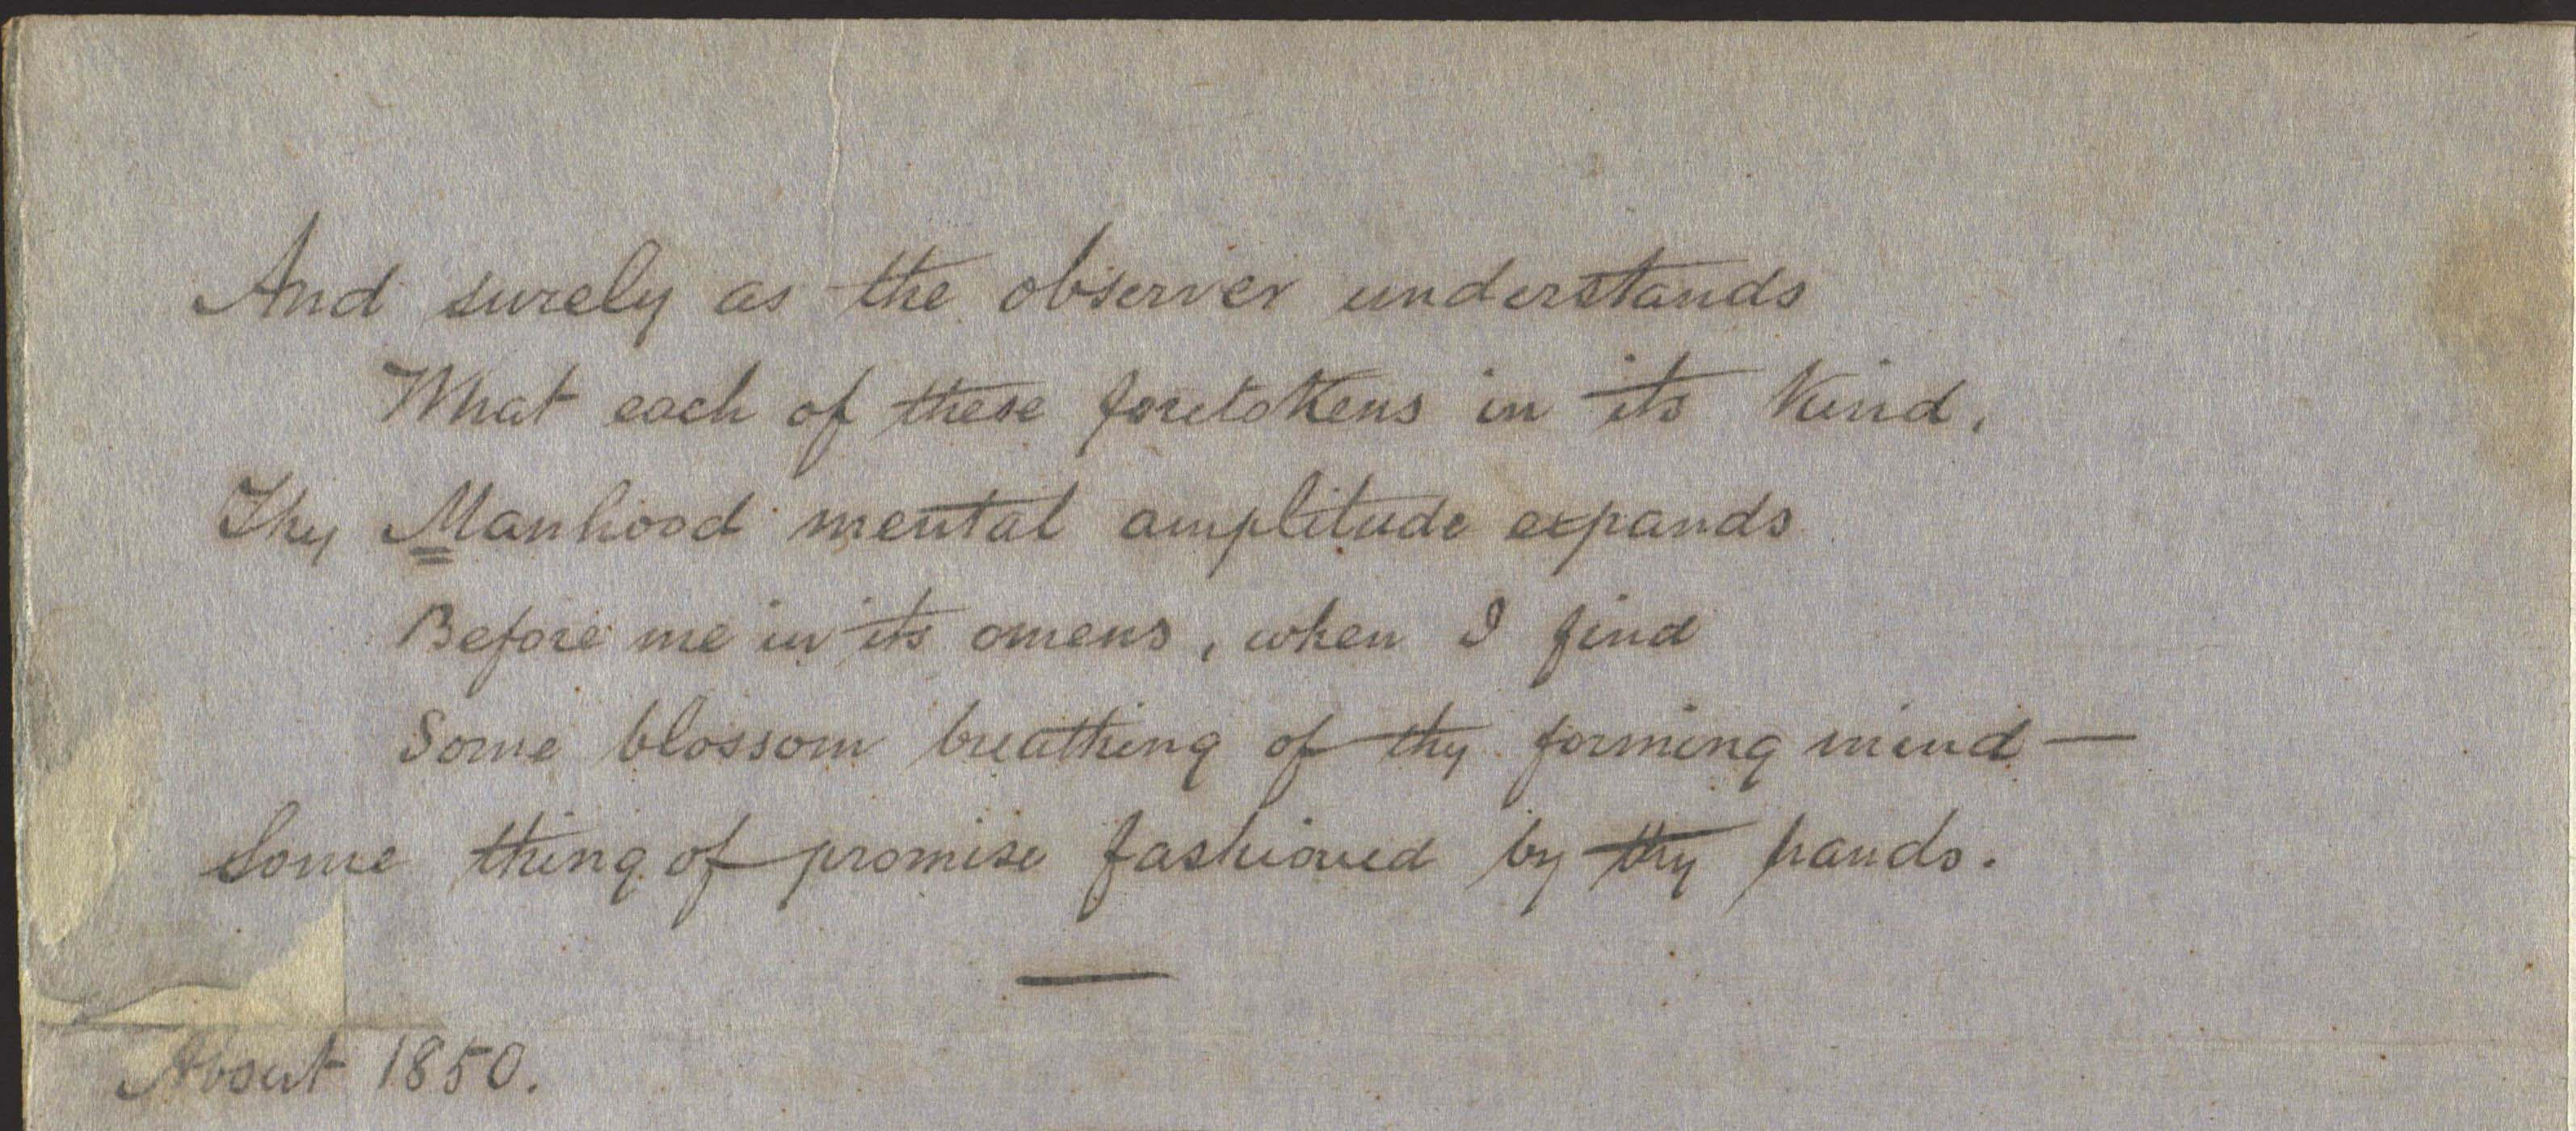 And surely as the observer understands
What each of these foretokens in its kind,
Thy Manhood mental amplitude expands
Before me in its omens, when I find
Some blossom breathing of thy forming mind —
Some thing of promise fashioned by thy hands.
About 1850.